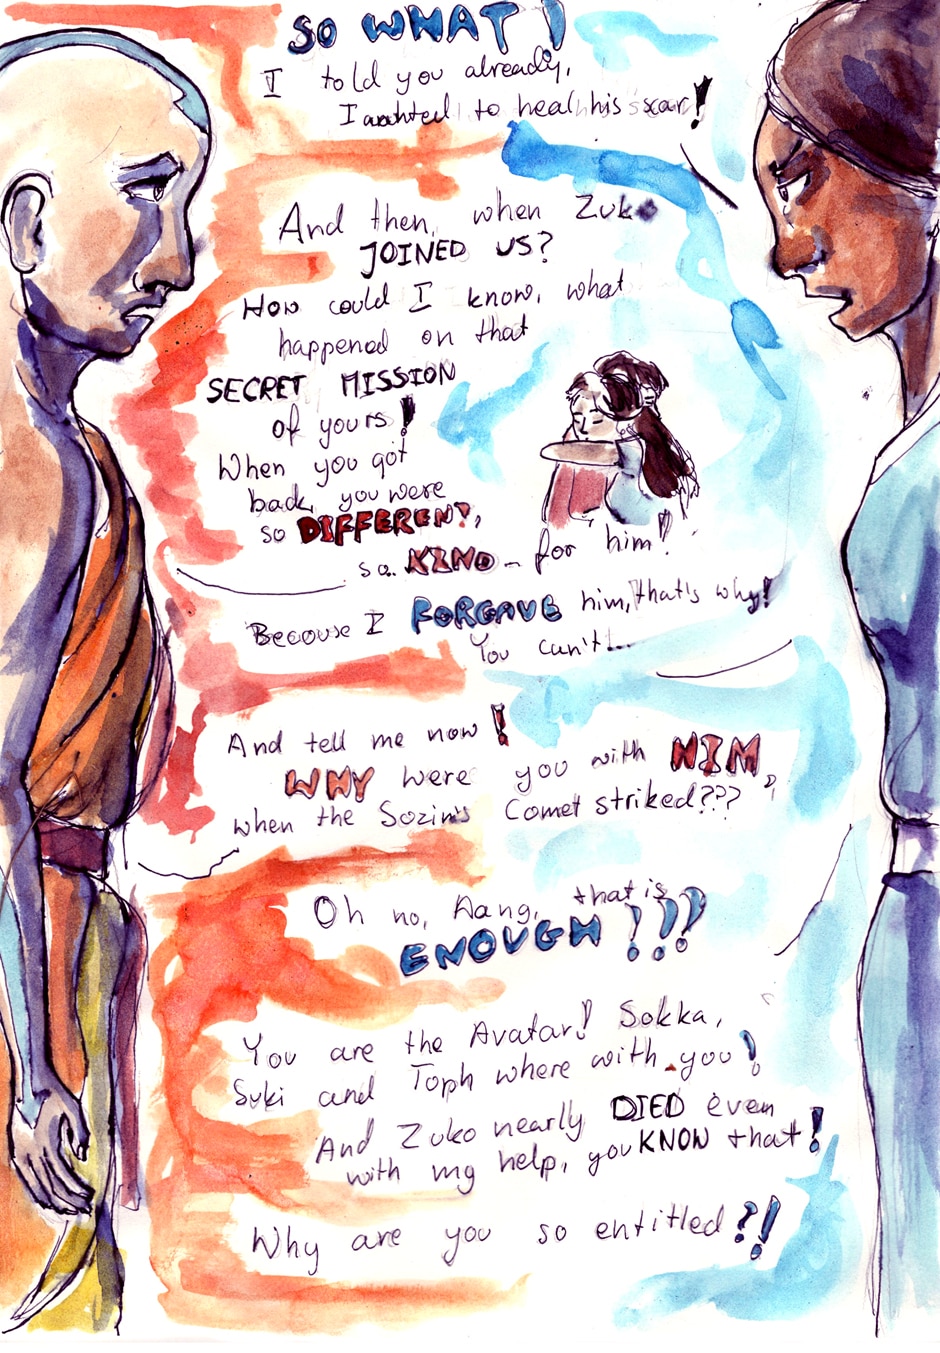 SO WHAT!
I told you already,
I wanted to heal his scar!
And then, when Zuko
JOINED US?
How could I know, what
happened on that
SECRET MISSION
of yours!
When you got
back, you were
so DIFFERENT,
so KIND - for him!
Because I FORGAVE him, that's why!
You can't...
And tell me now!
WHY were you with HIM,
when the Sozin's Comet striked???
Oh no, Aang, that is
ENOUGH!??
You are the Avatar! Sokka,
Suki and Toph where with you!
And Zuko nearly DIED even
with my help, you KNOW that!
Why are you so entitled?!